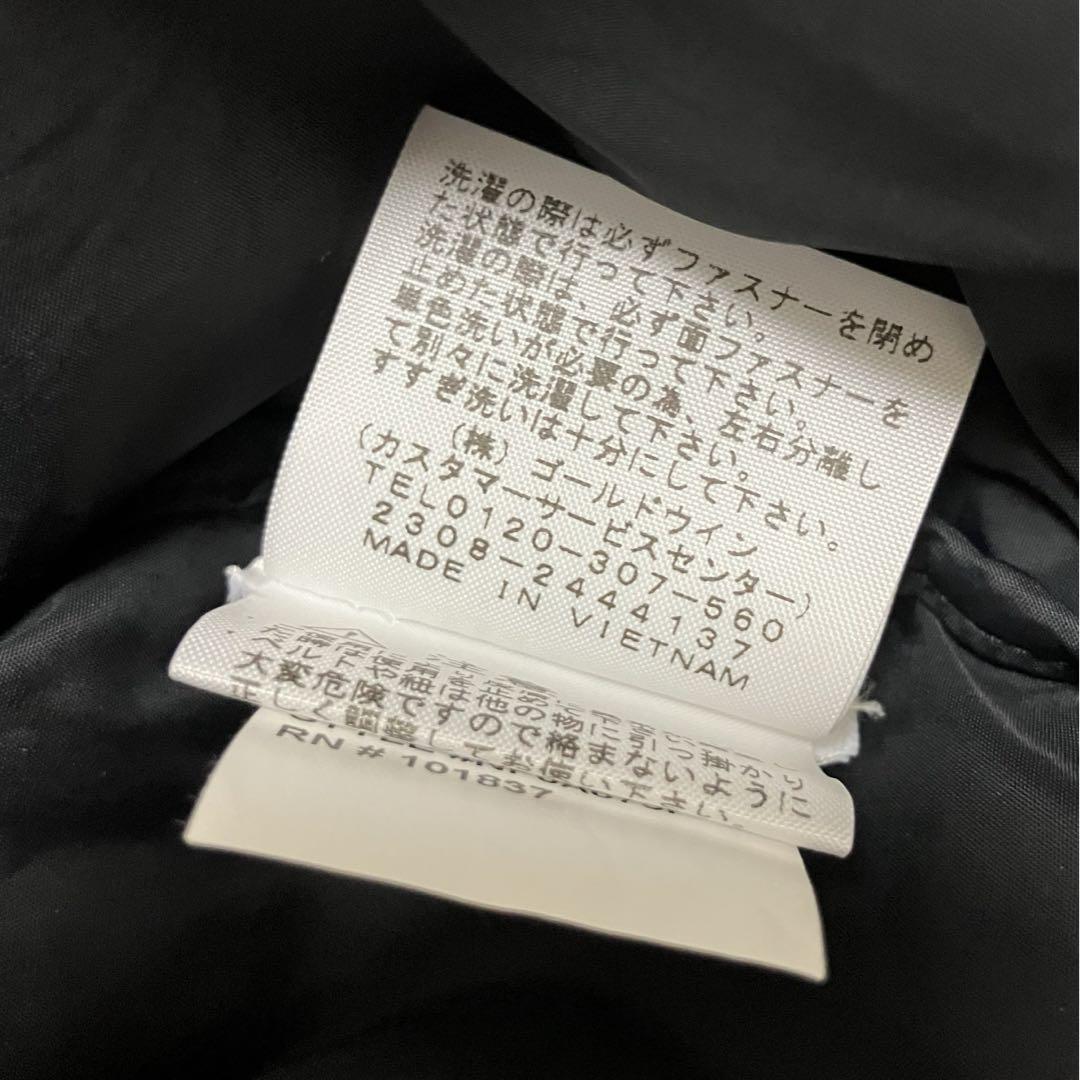 洗濯の際は必ずファスナーを閉め
た状態で行って下さい。
洗濯の際は、必ず面ファスナーを
止めた状態で行って下さい。
単色洗いが必要の為、左右分離し
て別々に洗濯して下さい。
すすぎ洗いは十分にして下さい。
(株)ゴールドウイン
(カスタマーサービスセンター)
TEL0120-307-560
2308-2444137
MADE IN VIETNAM
ベルトや紐は他の物に引っ掛かり
大変危険ですので絡まないように
正しく調整してお使い下さい。
RN # 101837